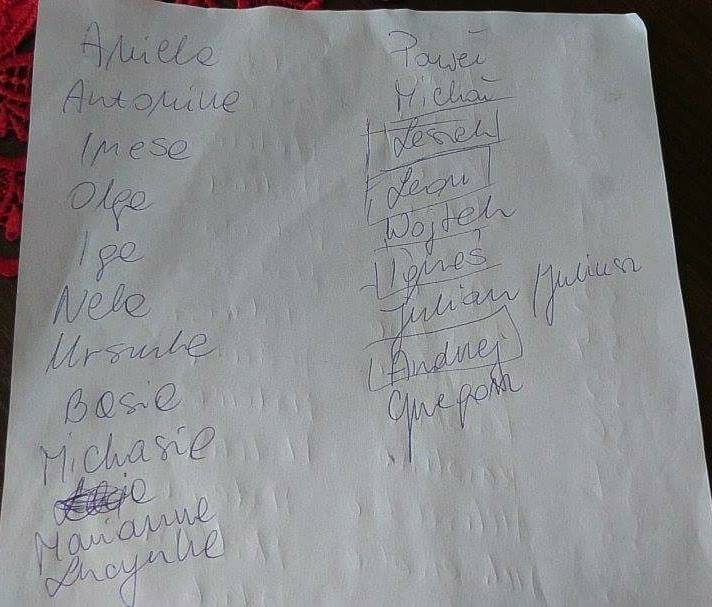 Aniela
Antonina
Inese
Olga
Iga
Nela
Urszula
Basia
Michasia
Marianna
Lucynka
Paweł
Michał
Leszek
Leon
Wojtek
Ignaś
Julian / Juliusz
Andrzej
Grzegorz